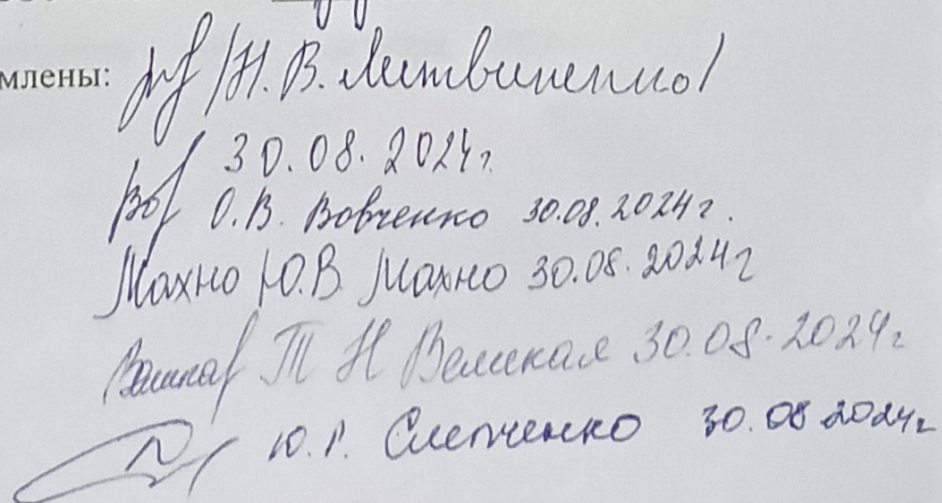 млены: /Н. В. Литвиненко/
30.08.2024г.
О.В. Вовченко 30.08.2024г.
Махно Ю.В. Махно 30.08.2024г
Т Н Великая 30.08.2024г
Ю.Г. Слепченко 30.08 2024г